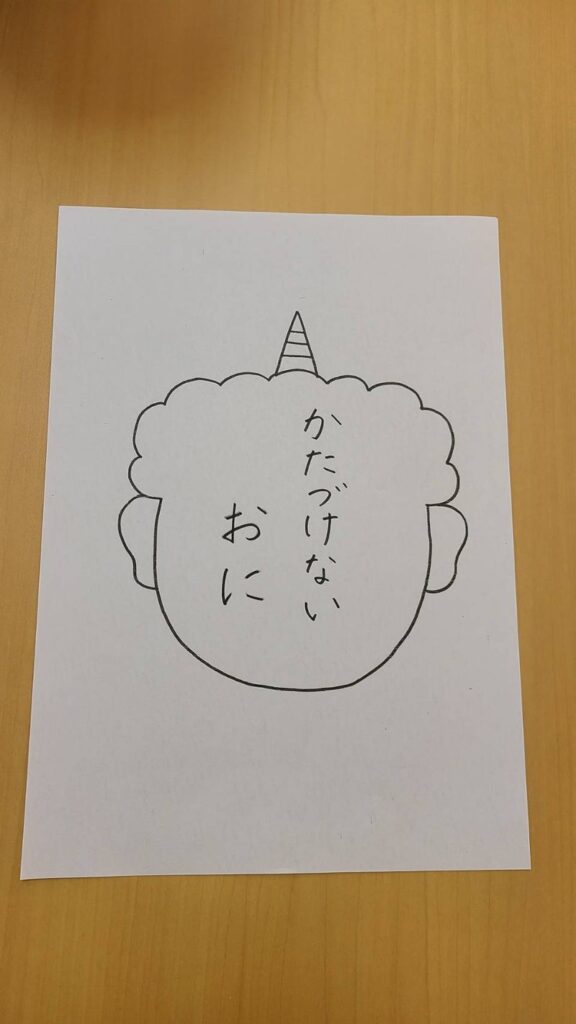 かたづけない
おに